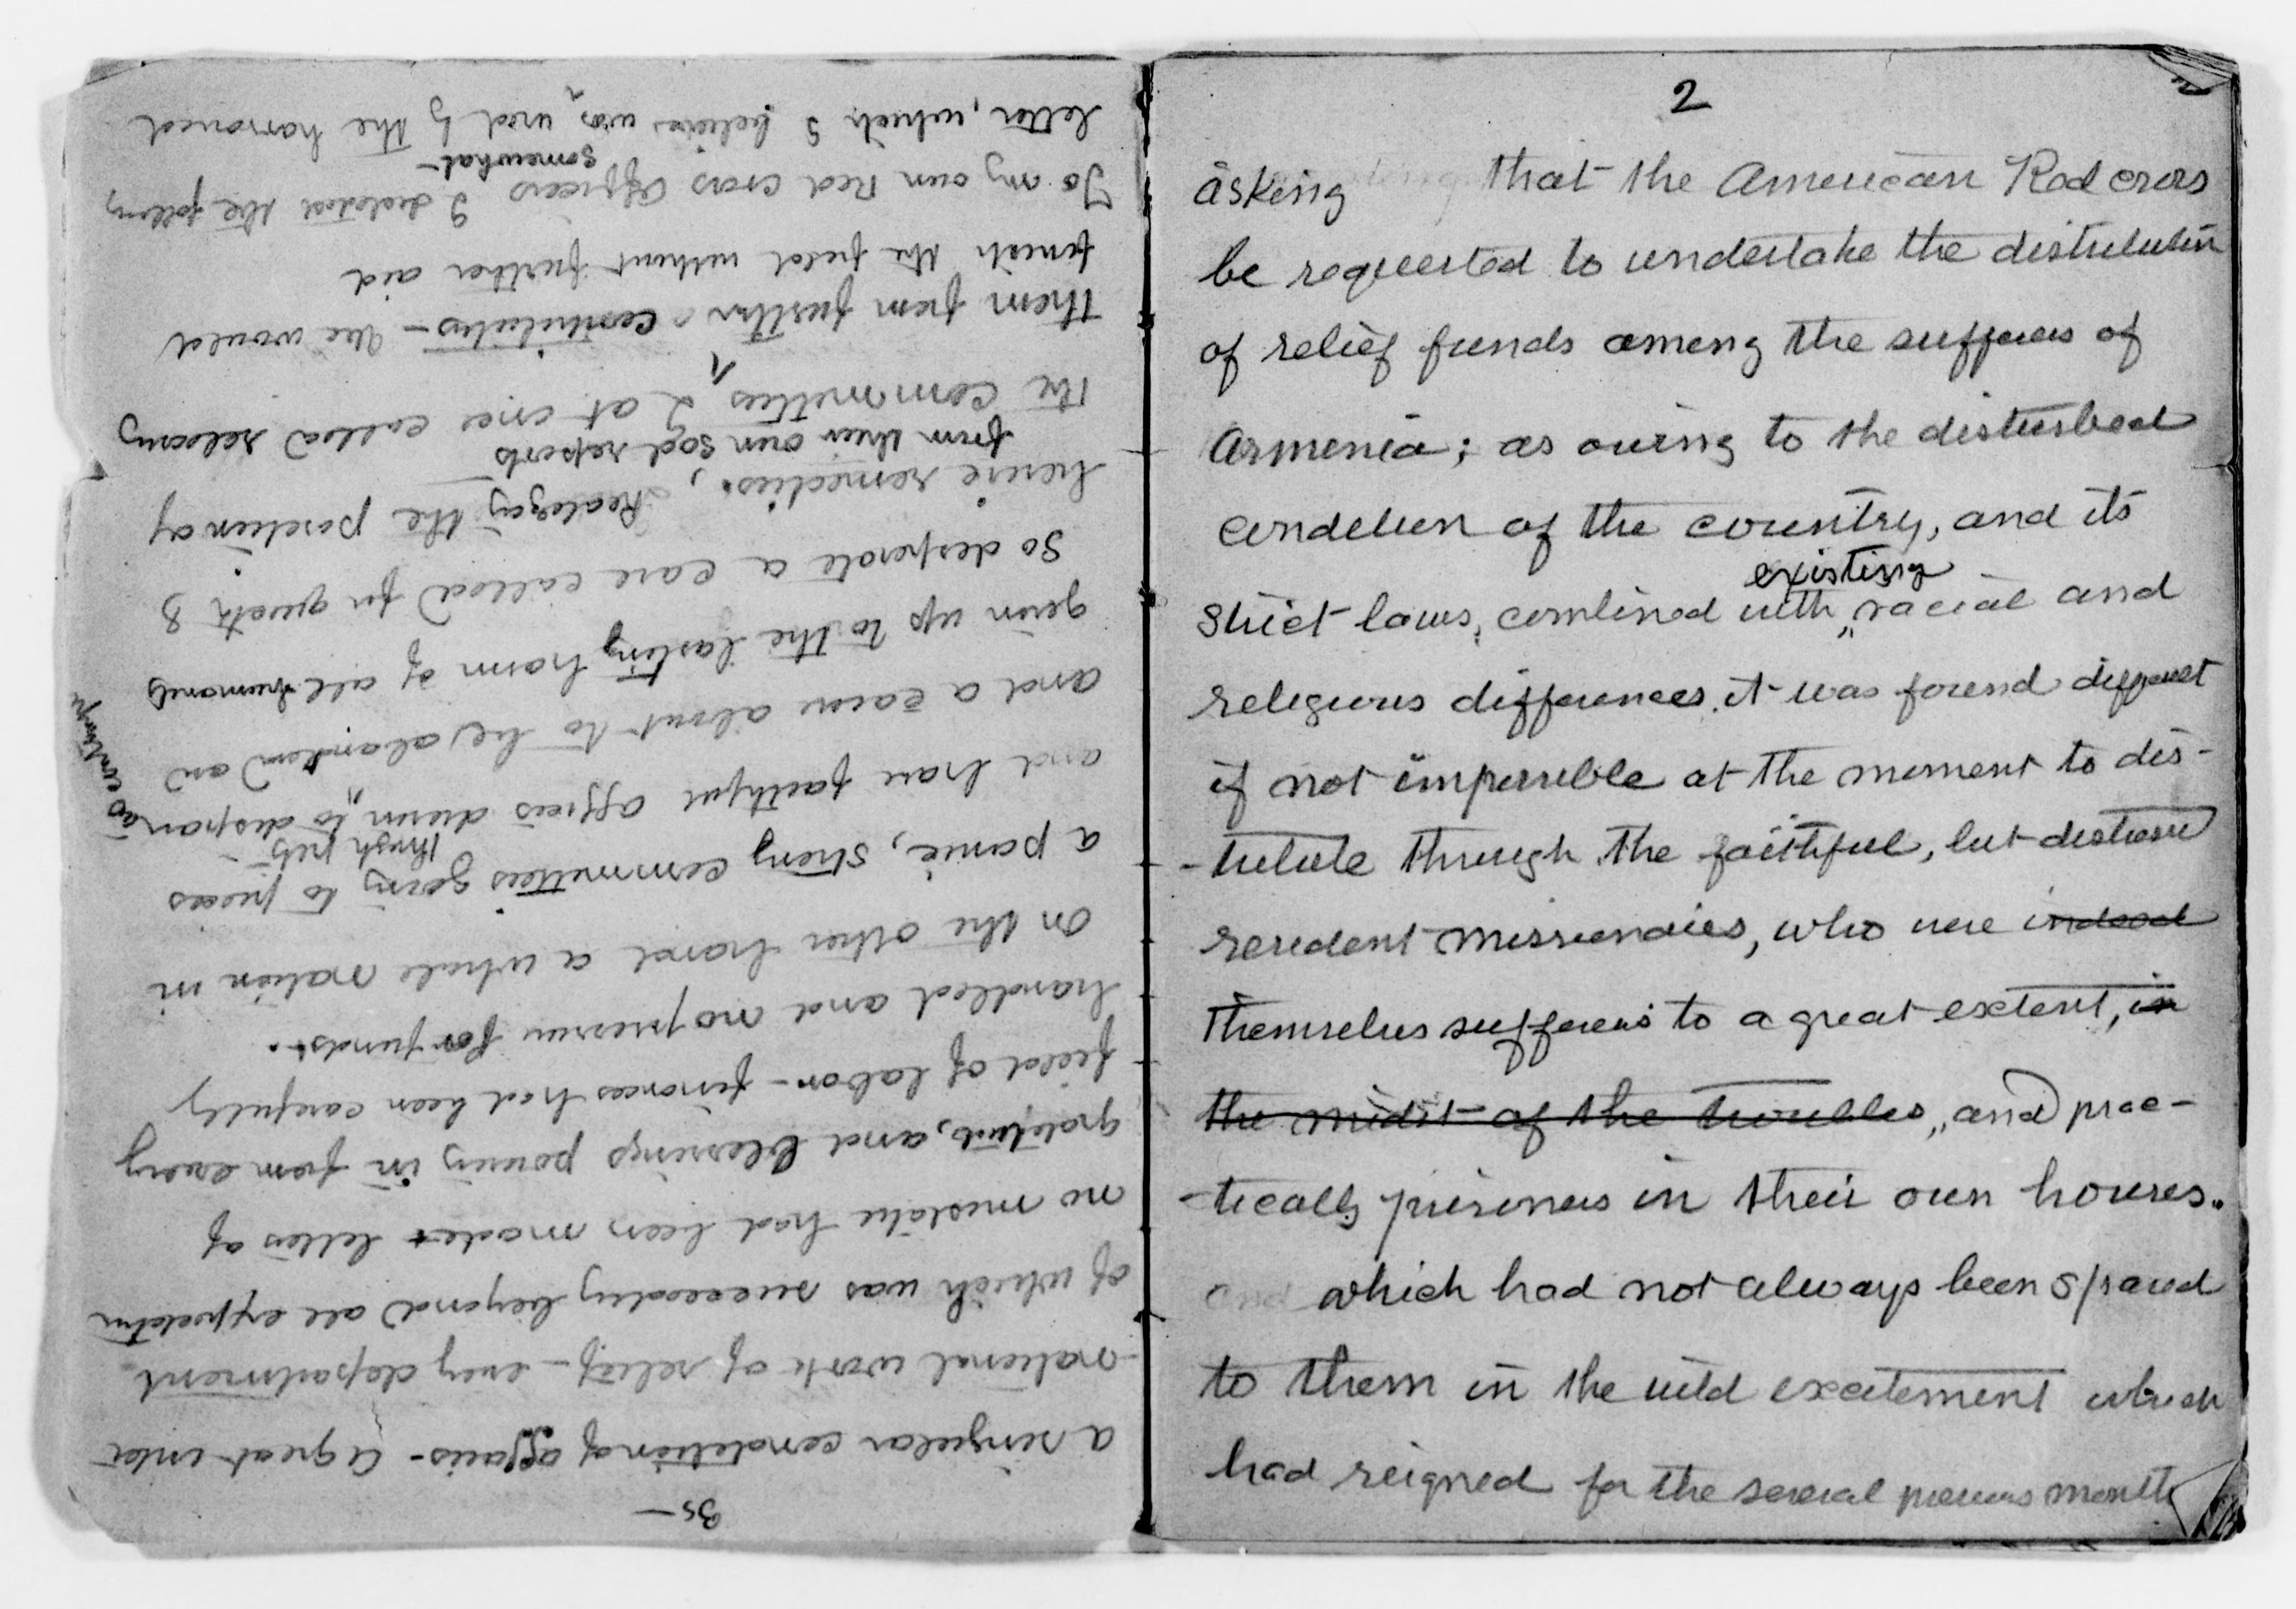 35—
a singular condition of affairs - A great inter
-national work of relief - every department
of which was succeeding beyond all expectation
no mistake had been made - letters of
gratitude, and blessings pouring in from every
field of labor - finances had been carefully
handled and no pressure for funds.
On the other hand a whole nation in
a panic, strong committees going to pieces
and brave faithful officers driven to despair
through pity
and a cause about to be abandoned and
given up to the lasting harm of all humanity
So desperate a case called for quick &
heroic remedies. Realizing the position of
from their own sad reports
the committees I at once called releasing
them from further contributions - We would
finish the field without further aid
To my own Red Cross officers I dictated the following
somewhat
letter, which I believe was used by the harrassed
2
asking that the American Red cross
be requested to undertake the distribution
of relief funds among the sufferers of
Armenia; as owing to the disturbed
condition of the country, and its
existing
strict laws, combined with racial and
religious differences, it was found difficult
if not impossible at the moment to dis-
-tribute through the faithful, but distressed
resident missionaries, who were indeed
themselves sufferers to a great extent, in
the midst of the troubles, and prac-
-tically prisoners in their own houses.
and which had not always been spared
to them in the wild excitement which
had reigned for the several previous months